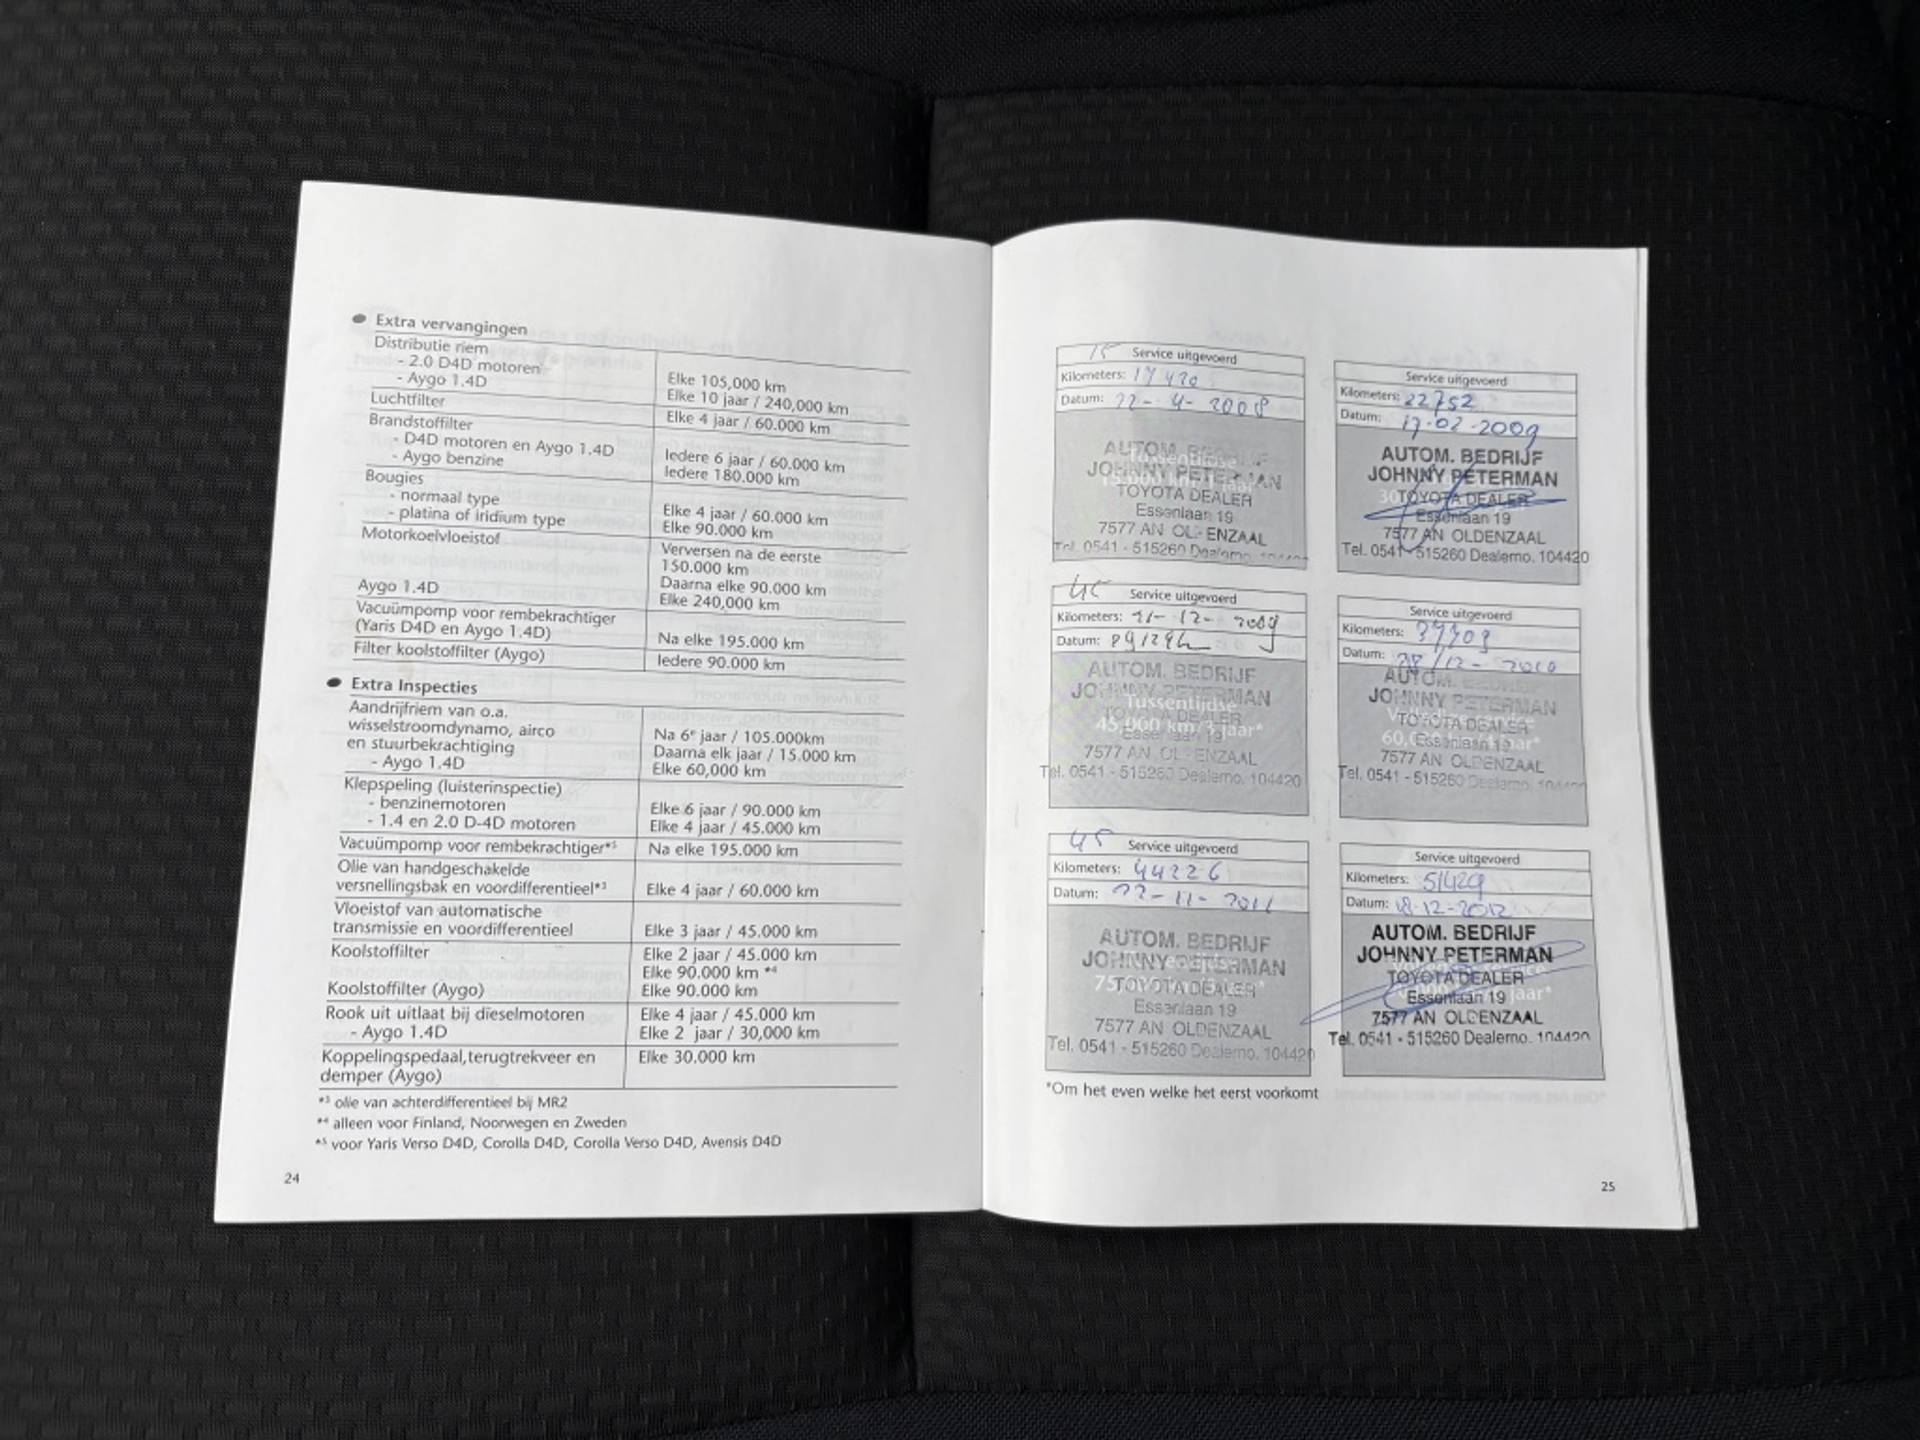 Extra vervangingen
Distributie riem
- 2.0 D4D motoren Elke 105,000 km
- Aygo 1.4D Elke 10 jaar / 240,000 km
Luchtfilter Elke 4 jaar / 60.000 km
Brandstoffilter
- D4D motoren en Aygo 1.4D Iedere 6 jaar / 60.000 km
- Aygo benzine Iedere 180.000 km
Bougies
- normaal type Elke 4 jaar / 60.000 km
- platina of iridium type Elke 90.000 km
Motorkoelvloeistof Verversen na de eerste
150.000 km
Daarna elke 90.000 km
Aygo 1.4D Elke 240,000 km
Vacuümpomp voor rembekrachtiger
(Yaris D4D en Aygo 1.4D) Na elke 195.000 km
Filter koolstoffilter (Aygo) Iedere 90.000 km
Extra Inspecties
Aandrijfriem van o.a.
wisselstroomdynamo, airco Na 6e jaar / 105.000km
en stuurbekrachtiging Daarna elk jaar / 15.000 km
- Aygo 1.4D Elke 60,000 km
Klepspeling (luisterinspectie)
- benzinemotoren Elke 6 jaar / 90.000 km
- 1.4 en 2.0 D-4D motoren Elke 4 jaar / 45.000 km
Vacuümpomp voor rembekrachtiger*5 Na elke 195.000 km
Olie van handgeschakelde
versnellingsbak en voordifferentieel*3 Elke 4 jaar / 60.000 km
Vloeistof van automatische
transmissie en voordifferentieel Elke 3 jaar / 45.000 km
Koolstoffilter Elke 2 jaar / 45.000 km
Elke 90.000 km *4
Koolstoffilter (Aygo) Elke 90.000 km
Rook uit uitlaat bij dieselmotoren Elke 4 jaar / 45.000 km
- Aygo 1.4D Elke 2 jaar / 30,000 km
Koppelingspedaal,terugtrekveer en Elke 30.000 km
demper (Aygo)
*3 olie van achterdifferentieel bij MR2
*4 alleen voor Finland, Noorwegen en Zweden
*5 voor Yaris Verso D4D, Corolla D4D, Corolla Verso D4D, Avensis D4D
24
15 Service uitgevoerd
Kilometers:
Datum: 22-4-2008
AUTOM. BEDRIJF
JOHNNY PETERMAN
TOYOTA DEALER
Essenlaan 19
7577 AN OLDENZAAL
Tel. 0541 - 515260 Dealerno. 104420
Service uitgevoerd
Kilometers: 22752
Datum: 17-02-2009
AUTOM. BEDRIJF
JOHNNY PETERMAN
TOYOTA DEALER
Essenlaan 19
7577 AN OLDENZAAL
Tel. 0541 - 515260 Dealerno. 104420
45 Service uitgevoerd
Kilometers: 21-12-2009
Datum:
AUTOM. BEDRIJF
JOHNNY PETERMAN
Tussentijdse
TOYOTA DEALER
45.000 km/3 jaar*
Essenlaan 19
7577 AN OLDENZAAL
Tel. 0541 - 515260 Dealerno. 104420
Service uitgevoerd
Kilometers:
Datum: 28/12-2010
AUTOM. BEDRIJF
JOHNNY PETERMAN
TOYOTA DEALER
Essenlaan 19
7577 AN OLDENZAAL
Tel. 0541 - 515260 Dealerno. 104420
45 Service uitgevoerd
Kilometers: 44226
Datum: 22-11-2011
AUTOM. BEDRIJF
JOHNNY PETERMAN
TOYOTA DEALER
Essenlaan 19
7577 AN OLDENZAAL
Tel. 0541 - 515260 Dealerno. 104420
Service uitgevoerd
Kilometers: 51429
Datum: 18-12-2012
AUTOM. BEDRIJF
JOHNNY PETERMAN
TOYOTA DEALER
Essenlaan 19
7577 AN OLDENZAAL
Tel. 0541 - 515260 Dealerno. 104420
*Om het even welke het eerst voorkomt
25